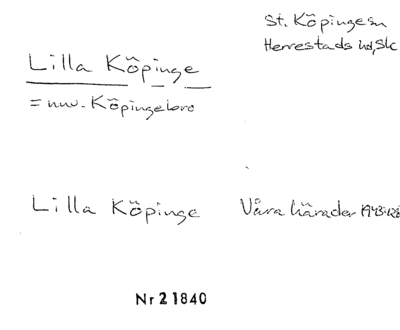 St. Köpinge sn
Herrestads hd, Sk
Lilla Köpinge
= nuv. Köpingebro
Lilla Köpinge Våra härader 1943:128
Nr 21840